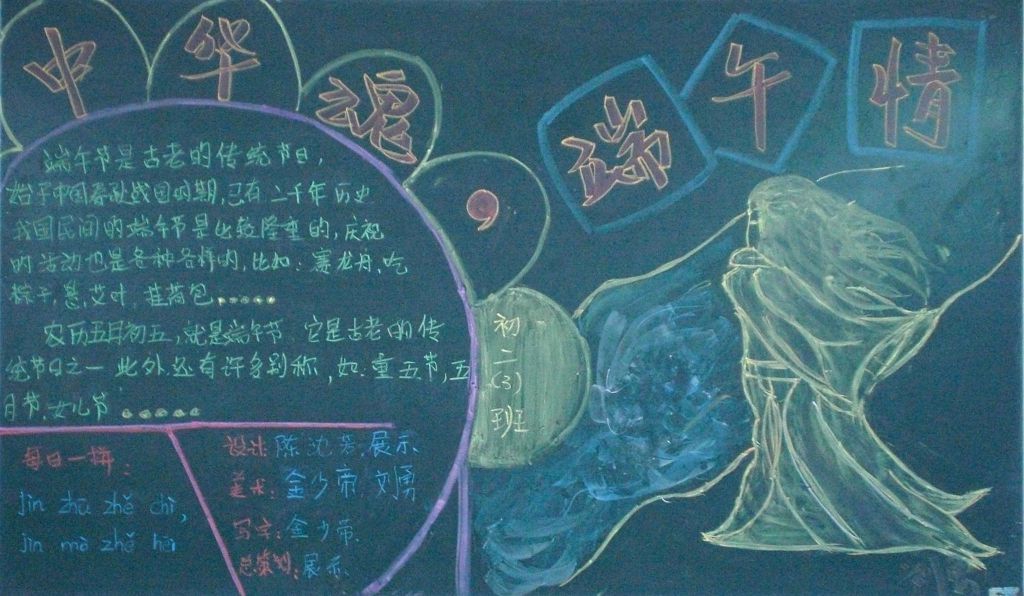 中华魂,端午情
端午节是古老的传统节日,
始于中国春秋战国时期,已有二千年历史
我国民间的端午节是比较隆重的,庆祝
的活动也是各种各样的,比如:赛龙舟,吃
粽子,悬艾叶,挂荷包......
农历五月初五,就是端午节 它是古老的传
统节日之一 此外还有许多别称,如:重五节,五
月节,女儿节......
初二(3)班
每日一拼:
jìn zhū zhě chì,
jìn mò zhě hēi
设计:陈沈芳.展示
美术:金少帝.刘勇
写字:金少帝.
总策划:展示